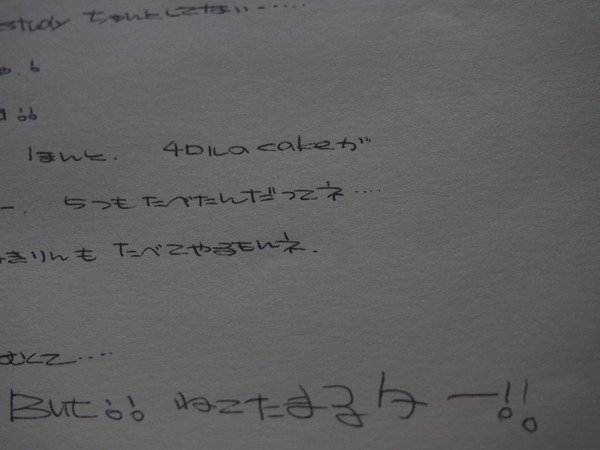 study ちゃんとしてない……
や. 6
!!
ほんと. 4コルのcakeが
ー. 5つもたべたんだってネ….
きりんも たべてやるもんネ.
むくて….
But!! ねてたまるケー!!